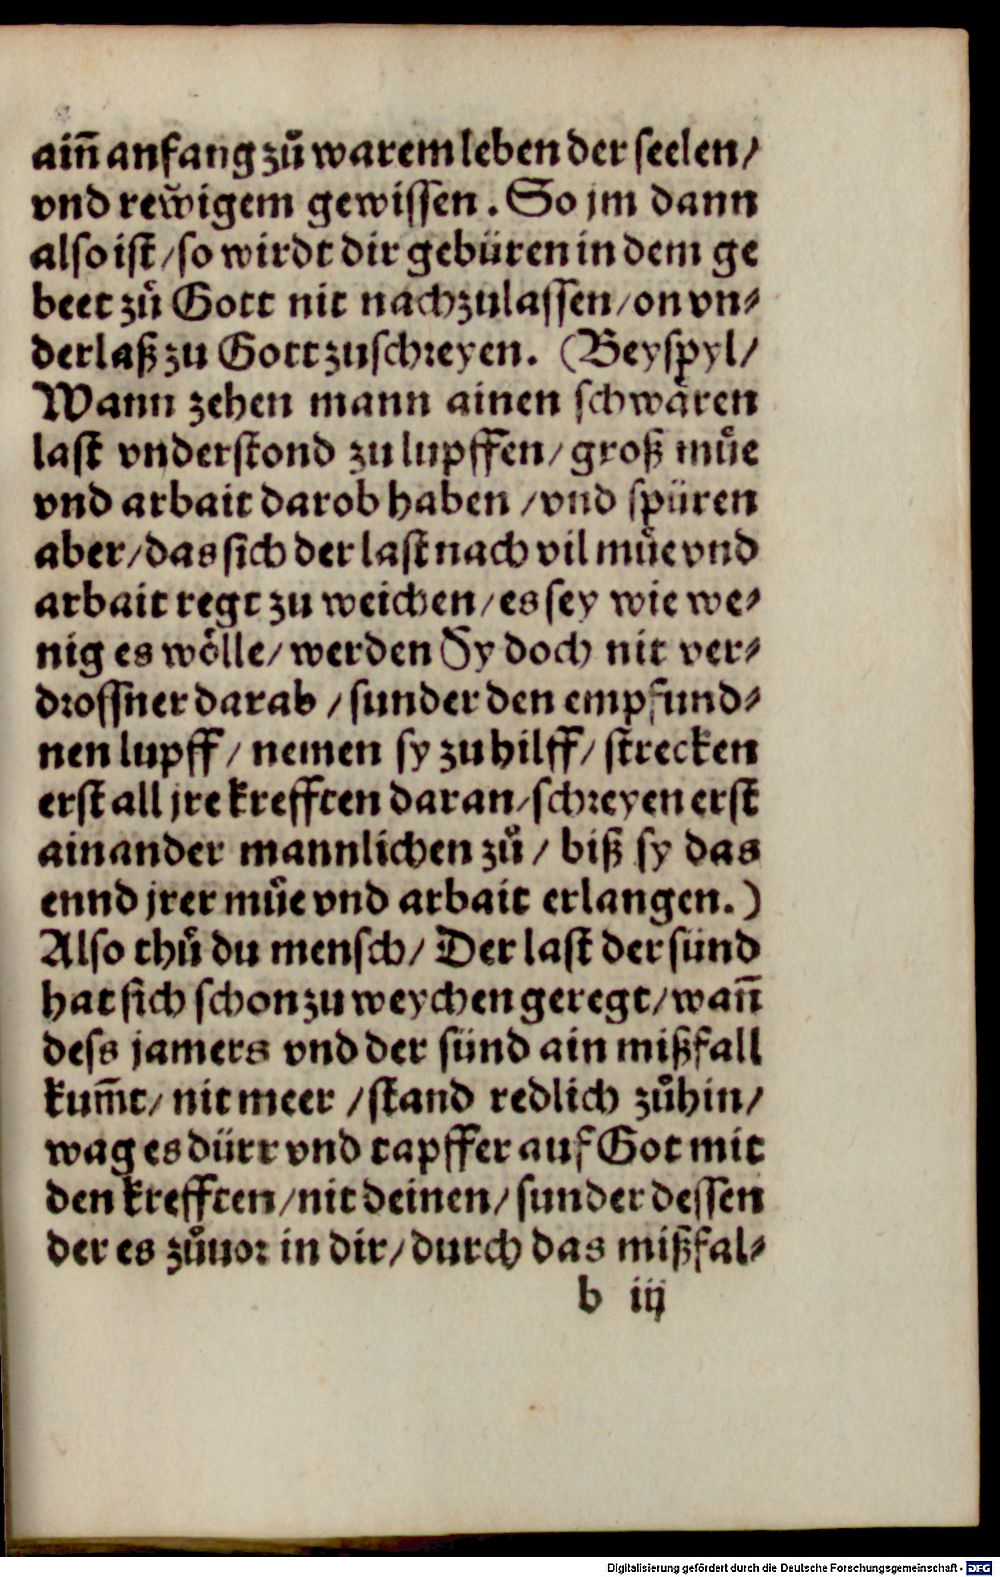 ain̄ anfang zů warem leben der seelen/
vnd rewͤigem gewissen. So jm dann
also ist/so wirdt dir gebüren in dem ge
beet zů Gott nit nachzulassen/on vn⸗
derlaß zu Gott zuschreyen. (Beyspyl/
Wann zehen mann ainen schwären
last vnderstond zu lupffen/groß müe
vnd arbait darob haben /vnd spüren
aber/das sich der last nach vil müe vnd
arbait regt zu weichen/es sey wie we⸗
nig es wölle/werden Sy doch nit ver⸗
drossner darab /sunder den empfund⸗
nen lupff/ nemen sy zu hilff/ strecken
erst all jre krefften daran/schreyen erst
ainander mannlichen zů/ biß sy das
ennd jrer müe vnd arbait erlangen.)
Also thů du mensch/ Der last der sünd
hat sich schon zu weychen geregt/wan̄
dess jamers vnd der sünd ain mißfall
kum̄t/nit meer /stand redlich zůhin/
wag es dürr vnd tapffer auf Got mit
den krefften/nit deinen/sunder dessen
der es zůuor in dir/durch das mißfal⸗
b iij
Digitalisierung gefördert durch die Deutsche Forschungsgemeinschaft - DFG